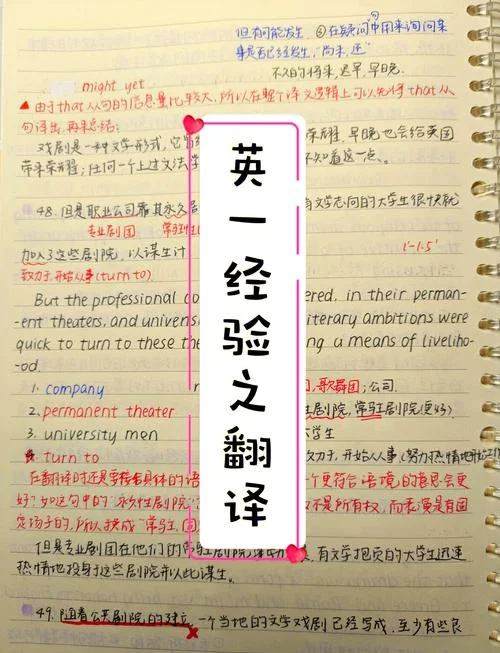 但有可能发生. ④在疑问句中用来询问某
事是否已经发生, "尚未, 还"
不久的将来, 迟早, 早晚.
might yet
▲由于that从句的信息量比较大, 所以在整个译文逻辑上可以先将that从
句译出, 再来总结:
戏剧是一种文学形式, 它 荣耀, 早晚也会给英国
带来荣耀; 任何一个上过文法学 不知道这一点.
48. 但是职业公司靠其永久 有文学志向的大学生很快就
专业剧团 常驻
加入了这些剧院, 以谋生计 1'-1.5'
致力于, 开始从事(turn to)
But the professional co ered, in their perman-
-ent theaters, and univers iterary ambitions were
quick to turn to these the ng a means of liveliho-
-od.
1. company 歌舞团; 公司.
2. permanent theater 剧院, 常驻剧院(更好)
3. university men 学生
turn to 力于, 开始从事(努力热情地
在翻译时还是要结合具体的语 个更符合语境的意思会更
好? 如这句中的"永久性剧院" 不是所有权, 而表演是有固
定场子的, 所以换成"常驻
但是专业剧团在他们的常驻剧院 有文学抱负的大学生迅速
热情地投身于这些剧院并以此谋生.
49. 随着公共剧院的建立, 一个当地的文学戏剧已经写成, 至少有些良
英一经验之翻译